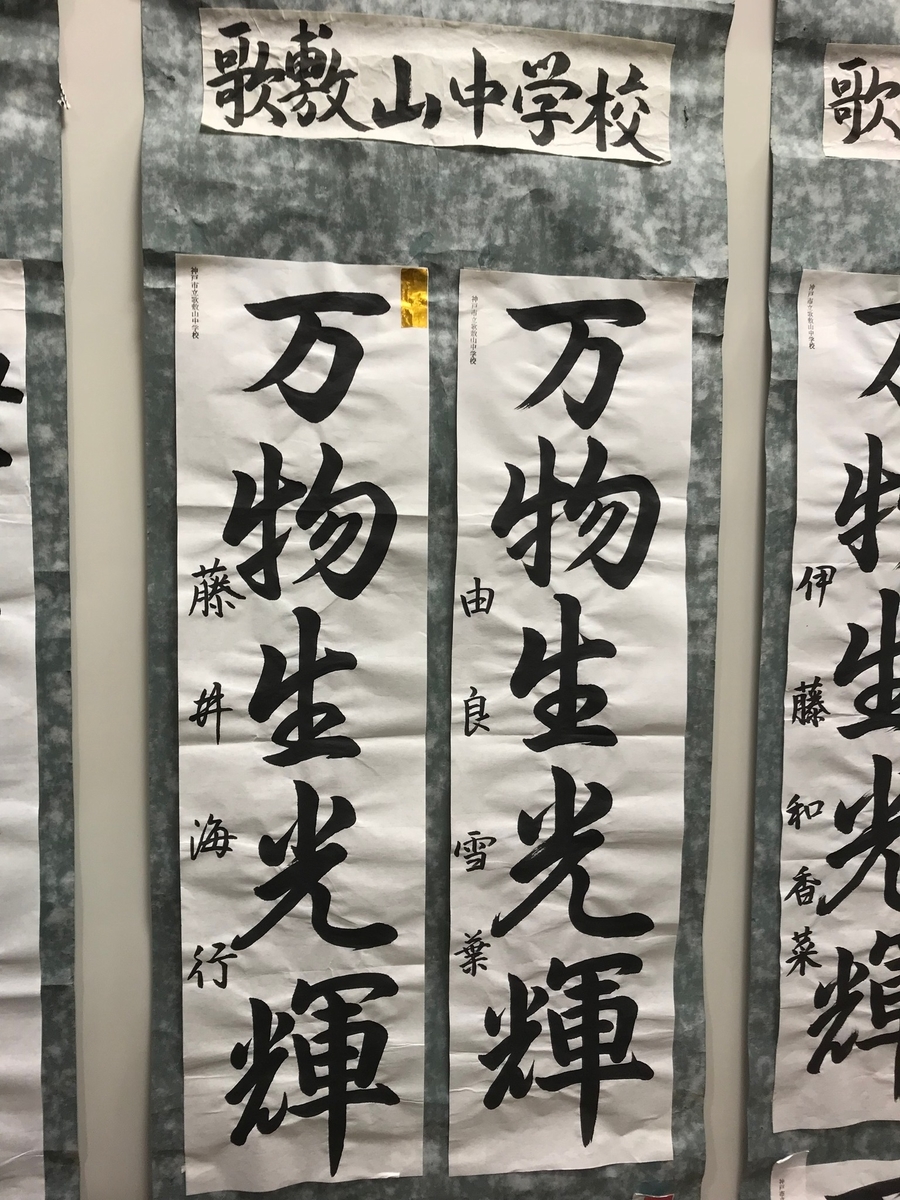 歌敷山中学校
神戸市立歌敷山中学校
万物生光輝
藤井海行
神戸市立歌敷山中学校
万物生光輝
由良雪葉
歌
神戸市立歌敷山中学校
万物生光輝
伊藤和香菜